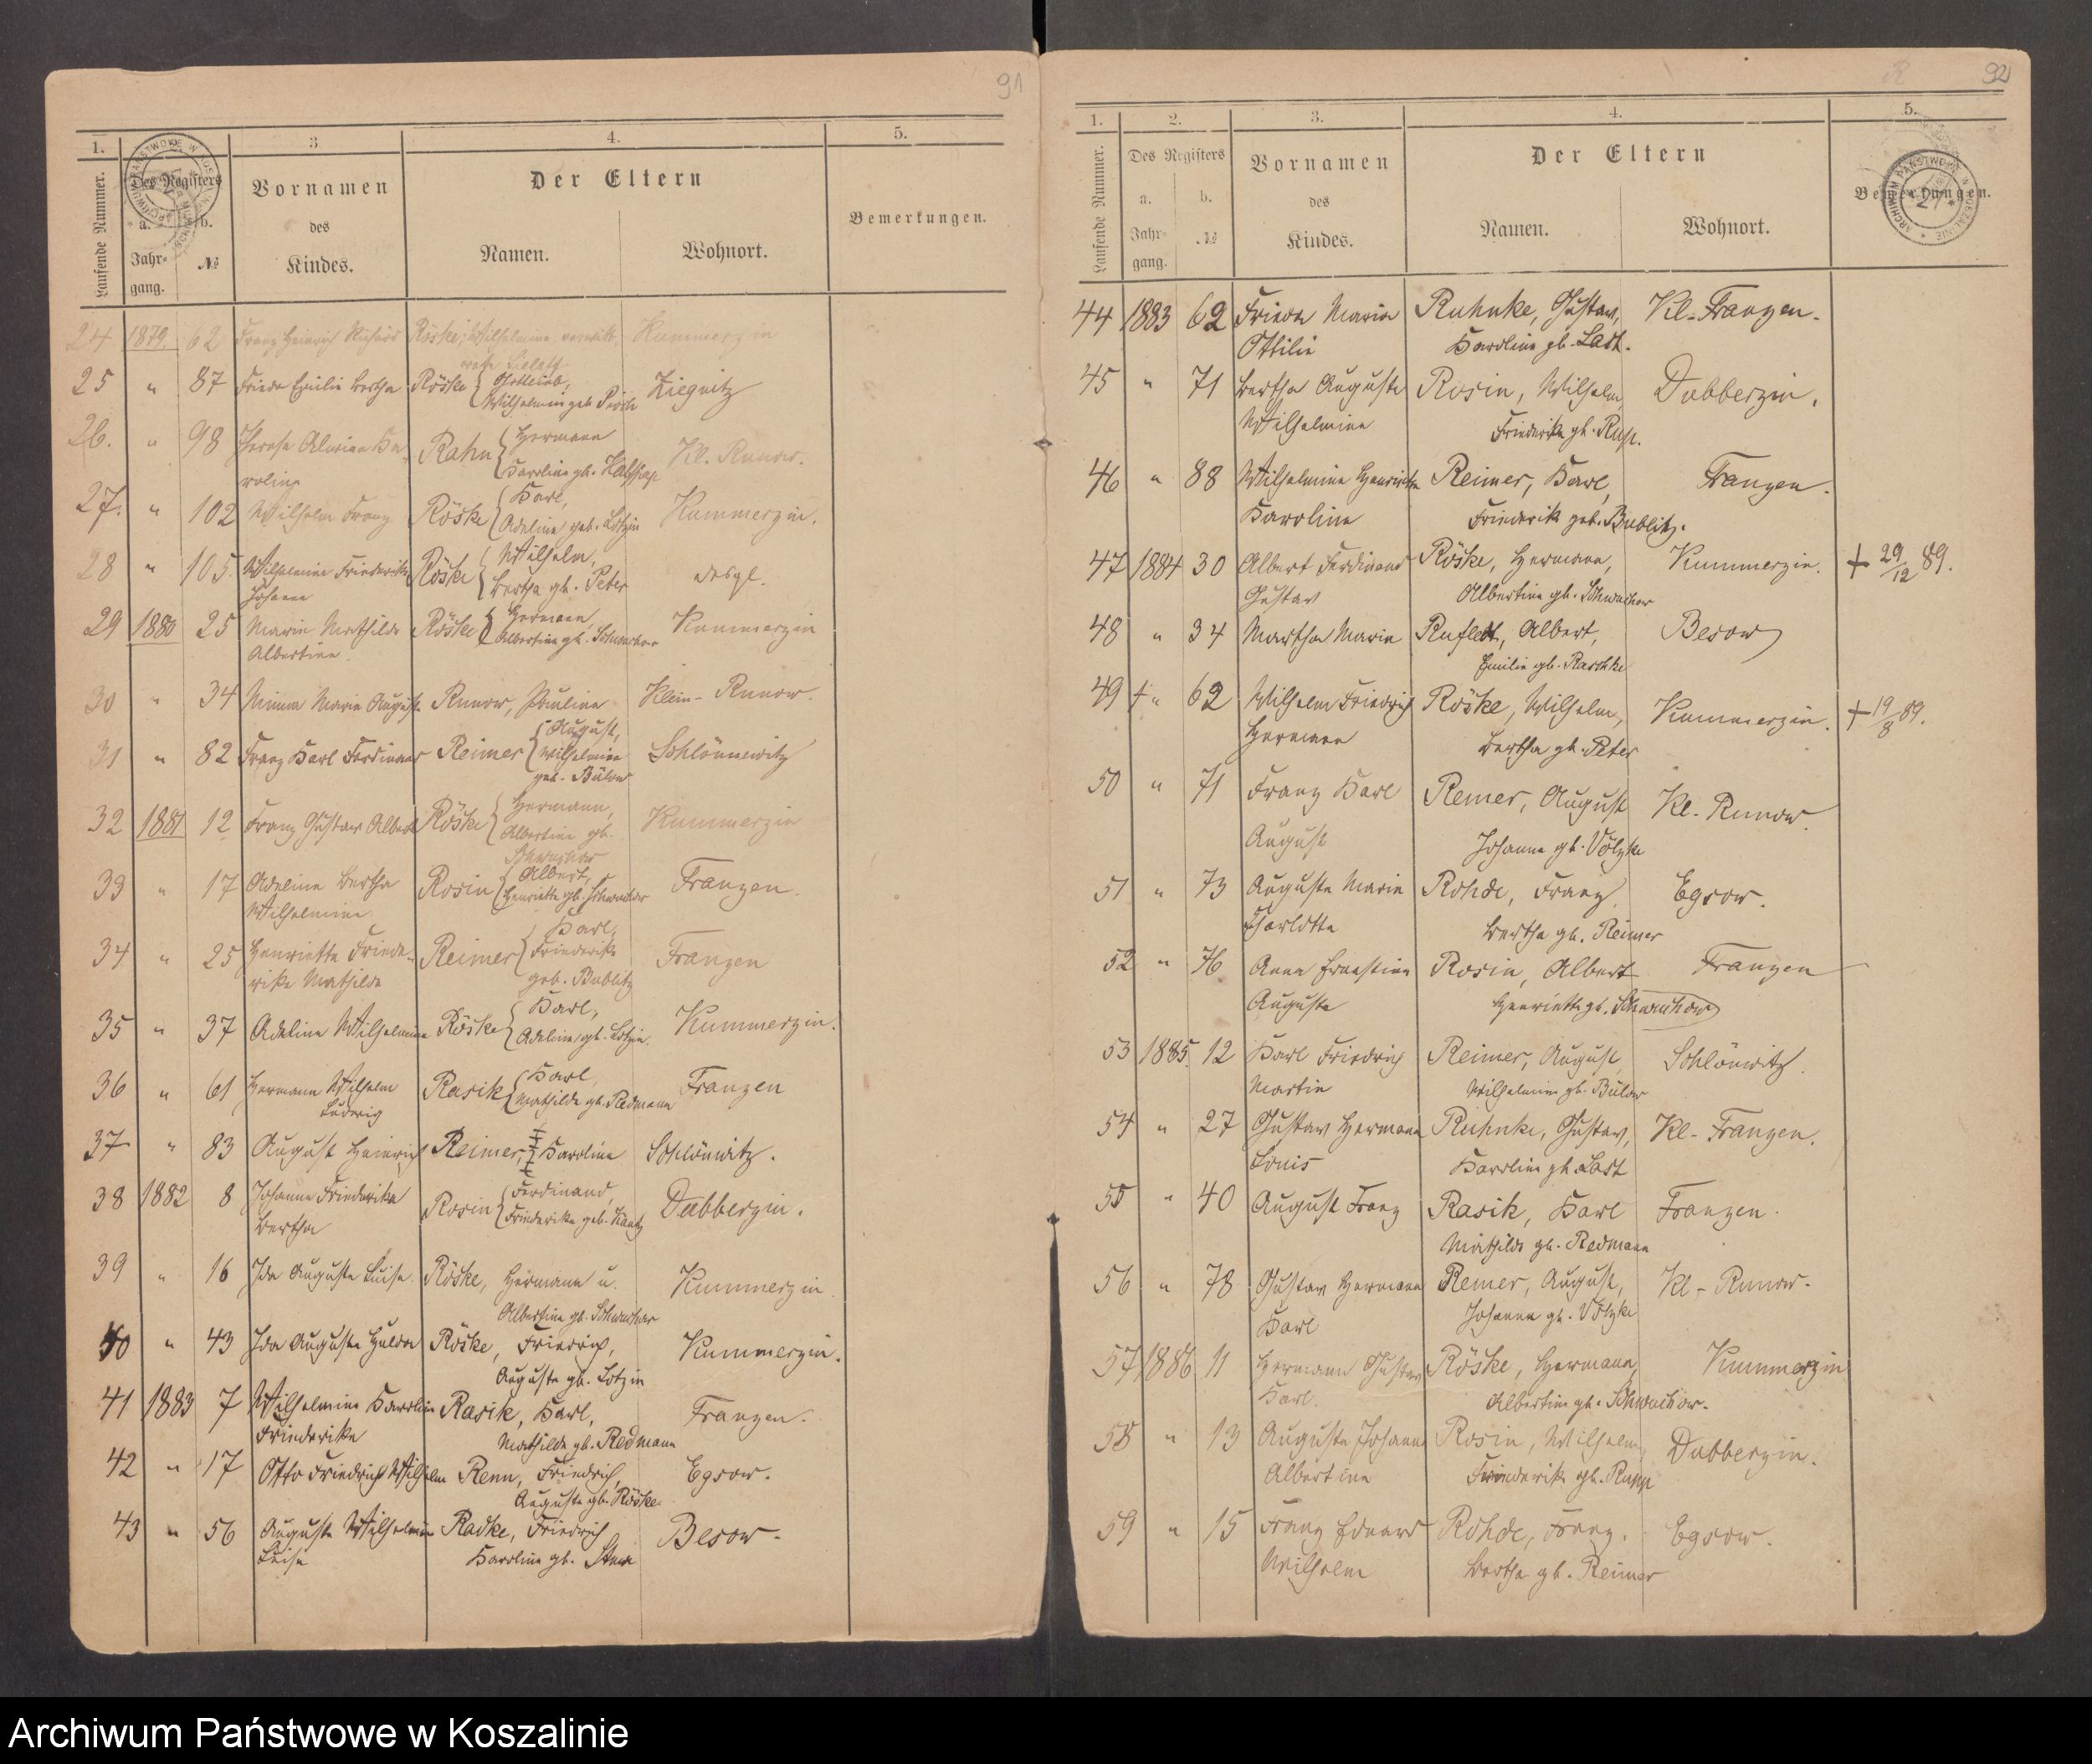 91
1.
3
4.
5.
Laufende Nummer.
Des Registers
Vornamen
des
Kindes.
Der Eltern
Namen.
Wohnort.
Bemerkungen.
a.
b.
Jahr-
gang.
№
24 1879. 62 Franz Heinrich Richard Röske, Wilhelmine, Kummerzin
25 " 87 Frieda Emilie Bertha Röske Gottlieb, Ziegnitz
Wilhelmine geb.
26. " 98 Therese Alwine Ka- Rahn Hermann Kl. Runow.
roline Karoline gb.
27. " 102 Wilhelm Franz Röske Karl, Kummerzin.
Adeline geb. Lotzin
28 " 105. Wilhelmine Friederike Röske Wilhelm, desgl.
Johanne Bertha gb. Peter
29 1880 25 Marie Mathilde Röske Hermann, Kummerzin
Albertine. Albertine gb. Schwuchow
30 " 34 Minna Marie Auguste Runow, Pauline Klein-Runow.
31 " 82 Franz Karl Ferdinand Reimer August, Schlönnewitz
Wilhelmine
geb. Bülow
32 1881 12 Franz Gustav Albert Röske Hermann, Kummerzin
Albertine gb.
Schwuchow
33 " 17 Adeline Bertha Rosin Albert, Franzen.
Wilhelmine Henriette gb. Schwuchow
34 " 25 Henriette Friede- Reimer Karl, Franzen
rike Mathilde Friederike
geb. Bublitz
35 " 37 Adeline Wilhelmine Röske Karl, Kummerzin.
Adeline gb. Lotzin.
36 " 61 Hermann Wilhelm Rasik Karl, Franzen
Ludwig Mathilde gb. Redmann
37 " 83 August Heinrich Reimer, Karoline Schlönwitz.
38 1882 8 Johanne Friederike Rosin Ferdinand, Dubberzin.
Bertha Friederike geb. Kautz
39 " 16 Ida Auguste Luise. Röske, Hermann u. Kummerzin.
Albertine gb. Schwuchow
40 " 43 Ida Auguste Hulda Röske, Friedrich, Kummerzin.
Auguste gb. Lotzin
41 1883 7 Wilhelmine Karoline Rasik, Karl, Franzen.
Friederike Mathilde gb. Redmann
42 " 17 Otto Friedrich Wilhelm Renn, Friedrich, Egsow.
Auguste gb. Röske.
43 " 56 Auguste Wilhelmine Radke, Friedrich Besow.
Luise Karoline gb.
R 92
1.
2.
3.
4.
5.
Laufende Nummer.
Des Registers
a.
b.
Jahr-
gang.
№
Vornamen
des
Kindes.
Der Eltern
Namen.
Wohnort.
Bemerkungen.
44 1883 62 Frieda Marie Ruhnke, Gustav, Kl-Franzen.
Ottilie Karoline gb. Last.
45 " 71 Bertha Auguste Rosin, Wilhelm Dubberzin.
Wilhelmine Friederike gb. Rupp.
46 " 88 Wilhelmine Henriette Reimer, Karl, Franzen.
Karoline Friederike geb. Bublitz.
47 1884 30 Albert Ferdinand Röske, Hermann, Kummerzin. + 29/12 89.
Gustav Albertine gb. Schwuchow
48 " 34 Martha Marie Rufledt, Albert, Besow
Emilie gb. Raschke
49 + " 62 Wilhelm Friedrich Röske, Wilhelm, Kummerzin. + 19/8 89.
Hermann Bertha gb. Peter
50 " 71 Franz Karl Remer, August Kl-Runow.
August Johanne gb. Völzke
51 " 73 Auguste Marie Rohde, Franz, Egsow.
Charlotte Bertha gb. Reimer
52 " 76 Anna Ernestine Rosin, Albert Franzen
Auguste Henriette gb. Schwuchow
53 1885. 12 Karl Friedrich Reimer, August, Schlönwitz.
Martin Wilhelmine gb. Bülow
54 " 27 Gustav Hermann Ruhnke, Gustav, Kl-Franzen.
Louis Karoline gb. Last
55 " 40 August Franz Rasik, Karl Franzen.
Mathilde gb. Redmann
56 " 78 Gustav Hermann Remer, August, Kl-Runow.
Karl Johanne gb. Völzke
57 1886 11 Hermann Gustav Röske, Hermann, Kummerzin
Karl. Albertine gb. Schwuchow.
58 " 13 Auguste Johanne Rosin, Wilhelm, Dubberzin.
Albertine Friederike gb. Rupp
59 " 15 Franz Eduard Rohde, Franz. Egsow.
Wilhelm Bertha gb. Reimer
Archiwum Państwowe w Koszalinie